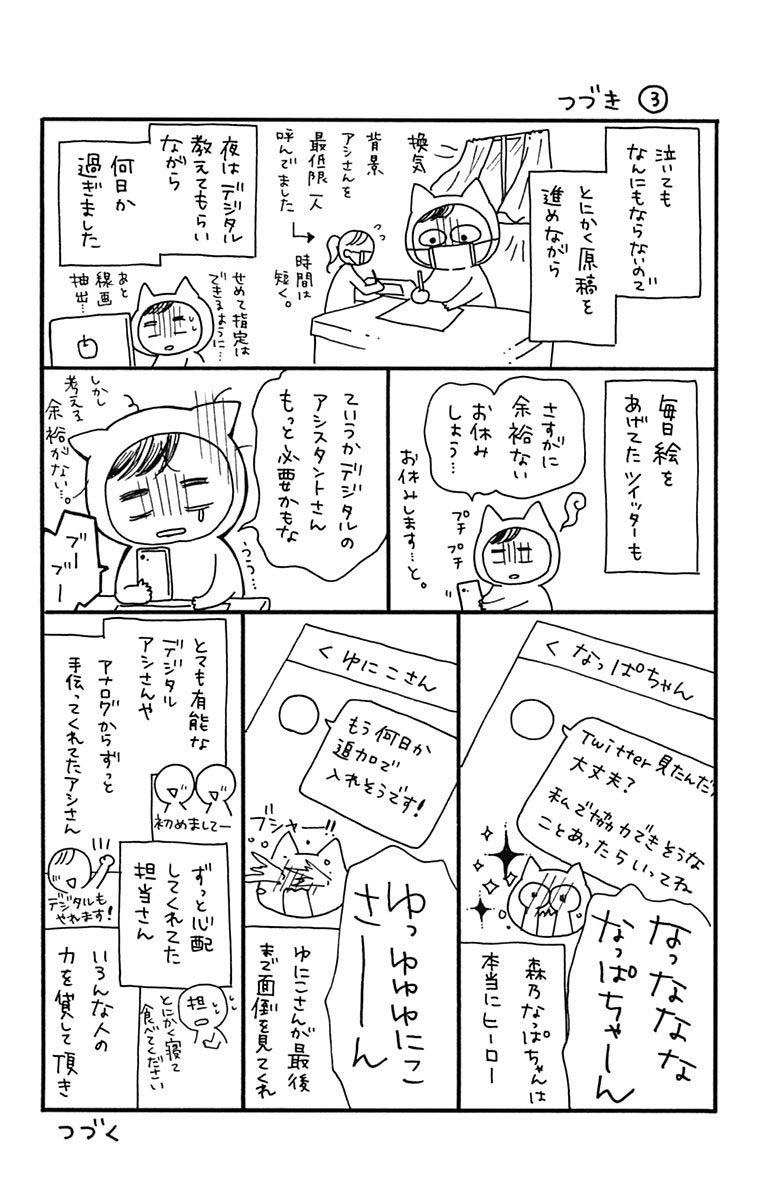 つづき ③
泣いても
なんにもならないので
とにかく原稿を
進めながら
換気
背景
アシさんを
最低限一人
呼んでました
→時間は
短く。
夜はデジタル
教えてもらい
ながら
何日か
過ぎました
せめて指定は
できるように…
あと
線画
抽出…
毎日絵を
あげてたツイッターも
さすがに
余裕ない
お休み
しよう…
プチ
プチ
お休みします…と。
ていうかデジタルの
アシスタントさん
もっと必要かもな
うぅ…
しかし
考える
余裕がない…。
ブー
ブー
< なっぱちゃん
Twitter見たんだ
大丈夫?
私で協力できそうな
ことあったらいってね
なっななな
なっぱちゃーん
森乃なっぱちゃんは
本当にヒーロー
< ゆにこさん
もう何日か
追加で
入れそうです!
ブシャー!!
ゆっゆゆゆにこ
さーーん
ゆにこさんが最後
まで面倒を見てくれ
とても有能な
デジタル
アシさんや
初めましてー
アナログからずっと
手伝ってくれてたアシさん
デジタルも
やれます!
ずっと心配
してくれてた
担当さん
担
とにかく寝て
食べてください
いろんな人の
力を貸して頂き
つづく